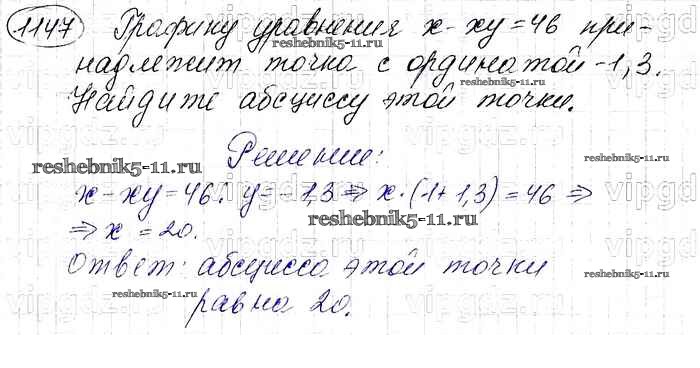 1147 Графику уравнения x - xy = 46 при-
reshebnik5-11.ru
надлежит точка с ординатой -1,3.
reshebnik5-11.ru
Найдите абсциссу этой точки.
reshebnik5-11.ru
Решение:
reshebnik5-11.ru
reshebnik5-11.ru
x - xy = 46; y = -1,3 ⇒ x·(1+1,3) = 46 ⇒
reshebnik5-11.ru
⇒ x = 20.
Ответ: абсцисса этой точки
reshebnik5-11.ru
reshebnik5-11.ru
равна 20.